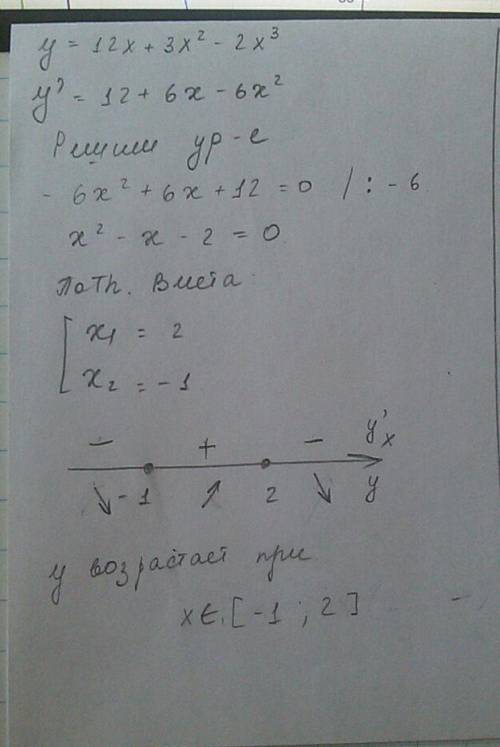 y = 12x + 3x² - 2x³
y' = 12 + 6x - 6x²
Решим ур-е
- 6x² + 6x + 12 = 0 / : - 6
x² - x - 2 = 0
По Th. Виета
x₁ = 2
x₂ = -1
- + - y'ₓ
↘ -1 ↗ 2 ↘ y
y возрастает при
x ∈ [ -1 ; 2 ]